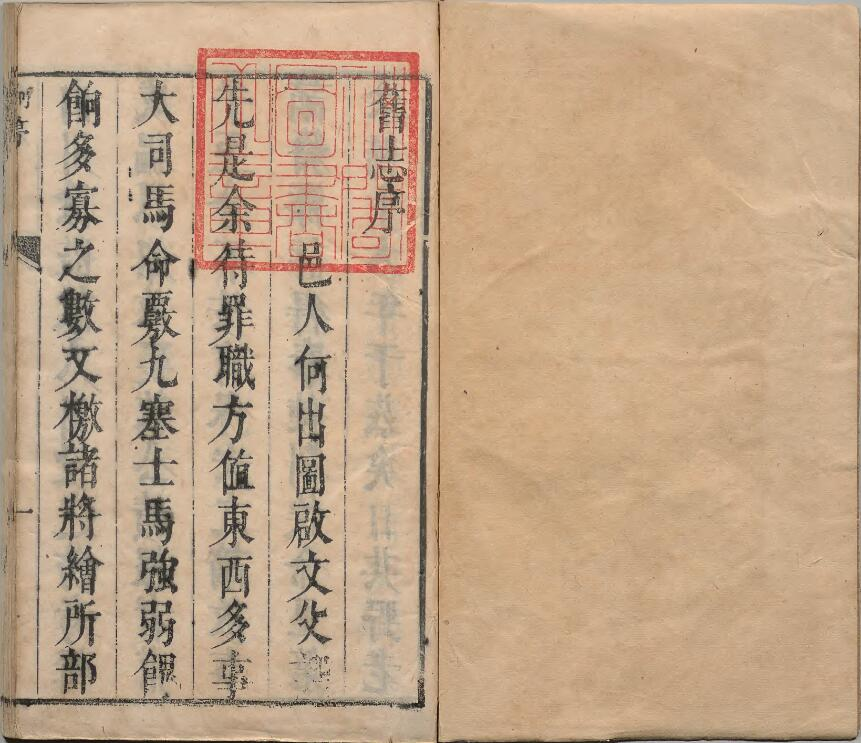 舊志序
邑人何出圖啟文父
先是余待罪職方值東西多事
大司馬命覈九塞士馬強弱餽
餉多寡之數又檄諸將繪所部